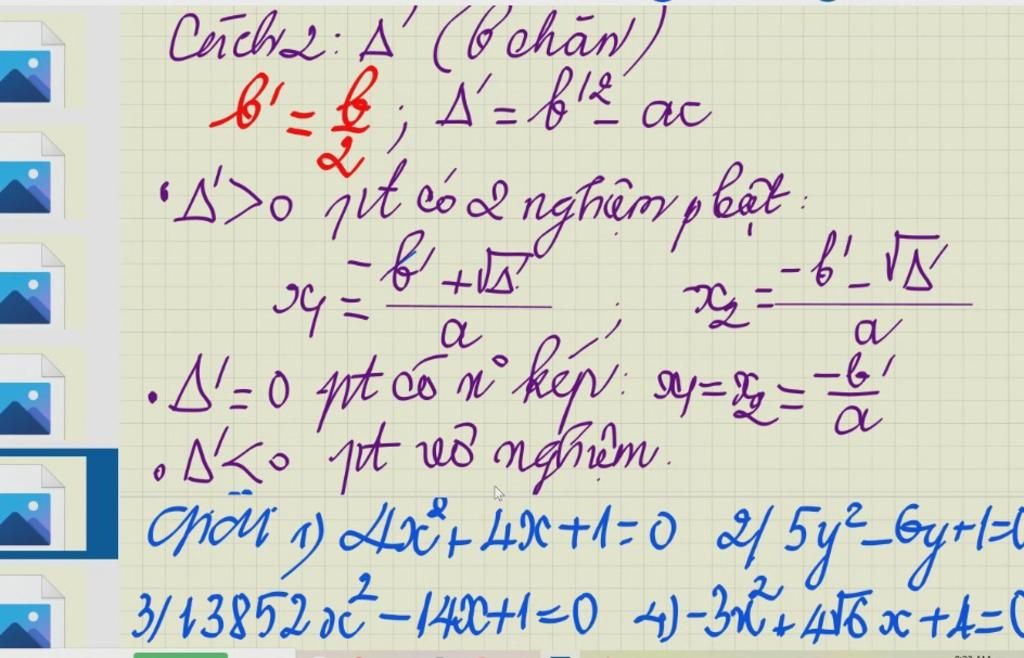 Cách 2: Δ' (b chẵn)
b' = b/2 ; Δ' = b'² - ac
• Δ' > 0 pt có 2 nghiệm pbiệt:
x₁ = (-b' + √Δ')/a ; x₂ = (-b' - √Δ')/a
• Δ' = 0 pt có n° kép: x₁ = x₂ = -b'/a
• Δ' < 0 pt vô nghiệm.
Giải 1) 4x² + 4x + 1 = 0 2/ 5y² - 6y + 1 = 0
3/ 13852x² - 14x + 1 = 0 4) -3x² + 4√6 x + 1 = 0